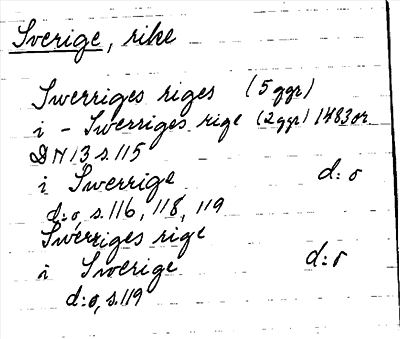 Sverige, rike
Swerriges riges (5 ggr)
i - Swerriges rige (2 ggr) 1483 or
DN 13 s. 115
i Swerrige d:o
d:o, s. 116, 118, 119
Swerriges rige
i Swerige d:o
d:o, s. 119